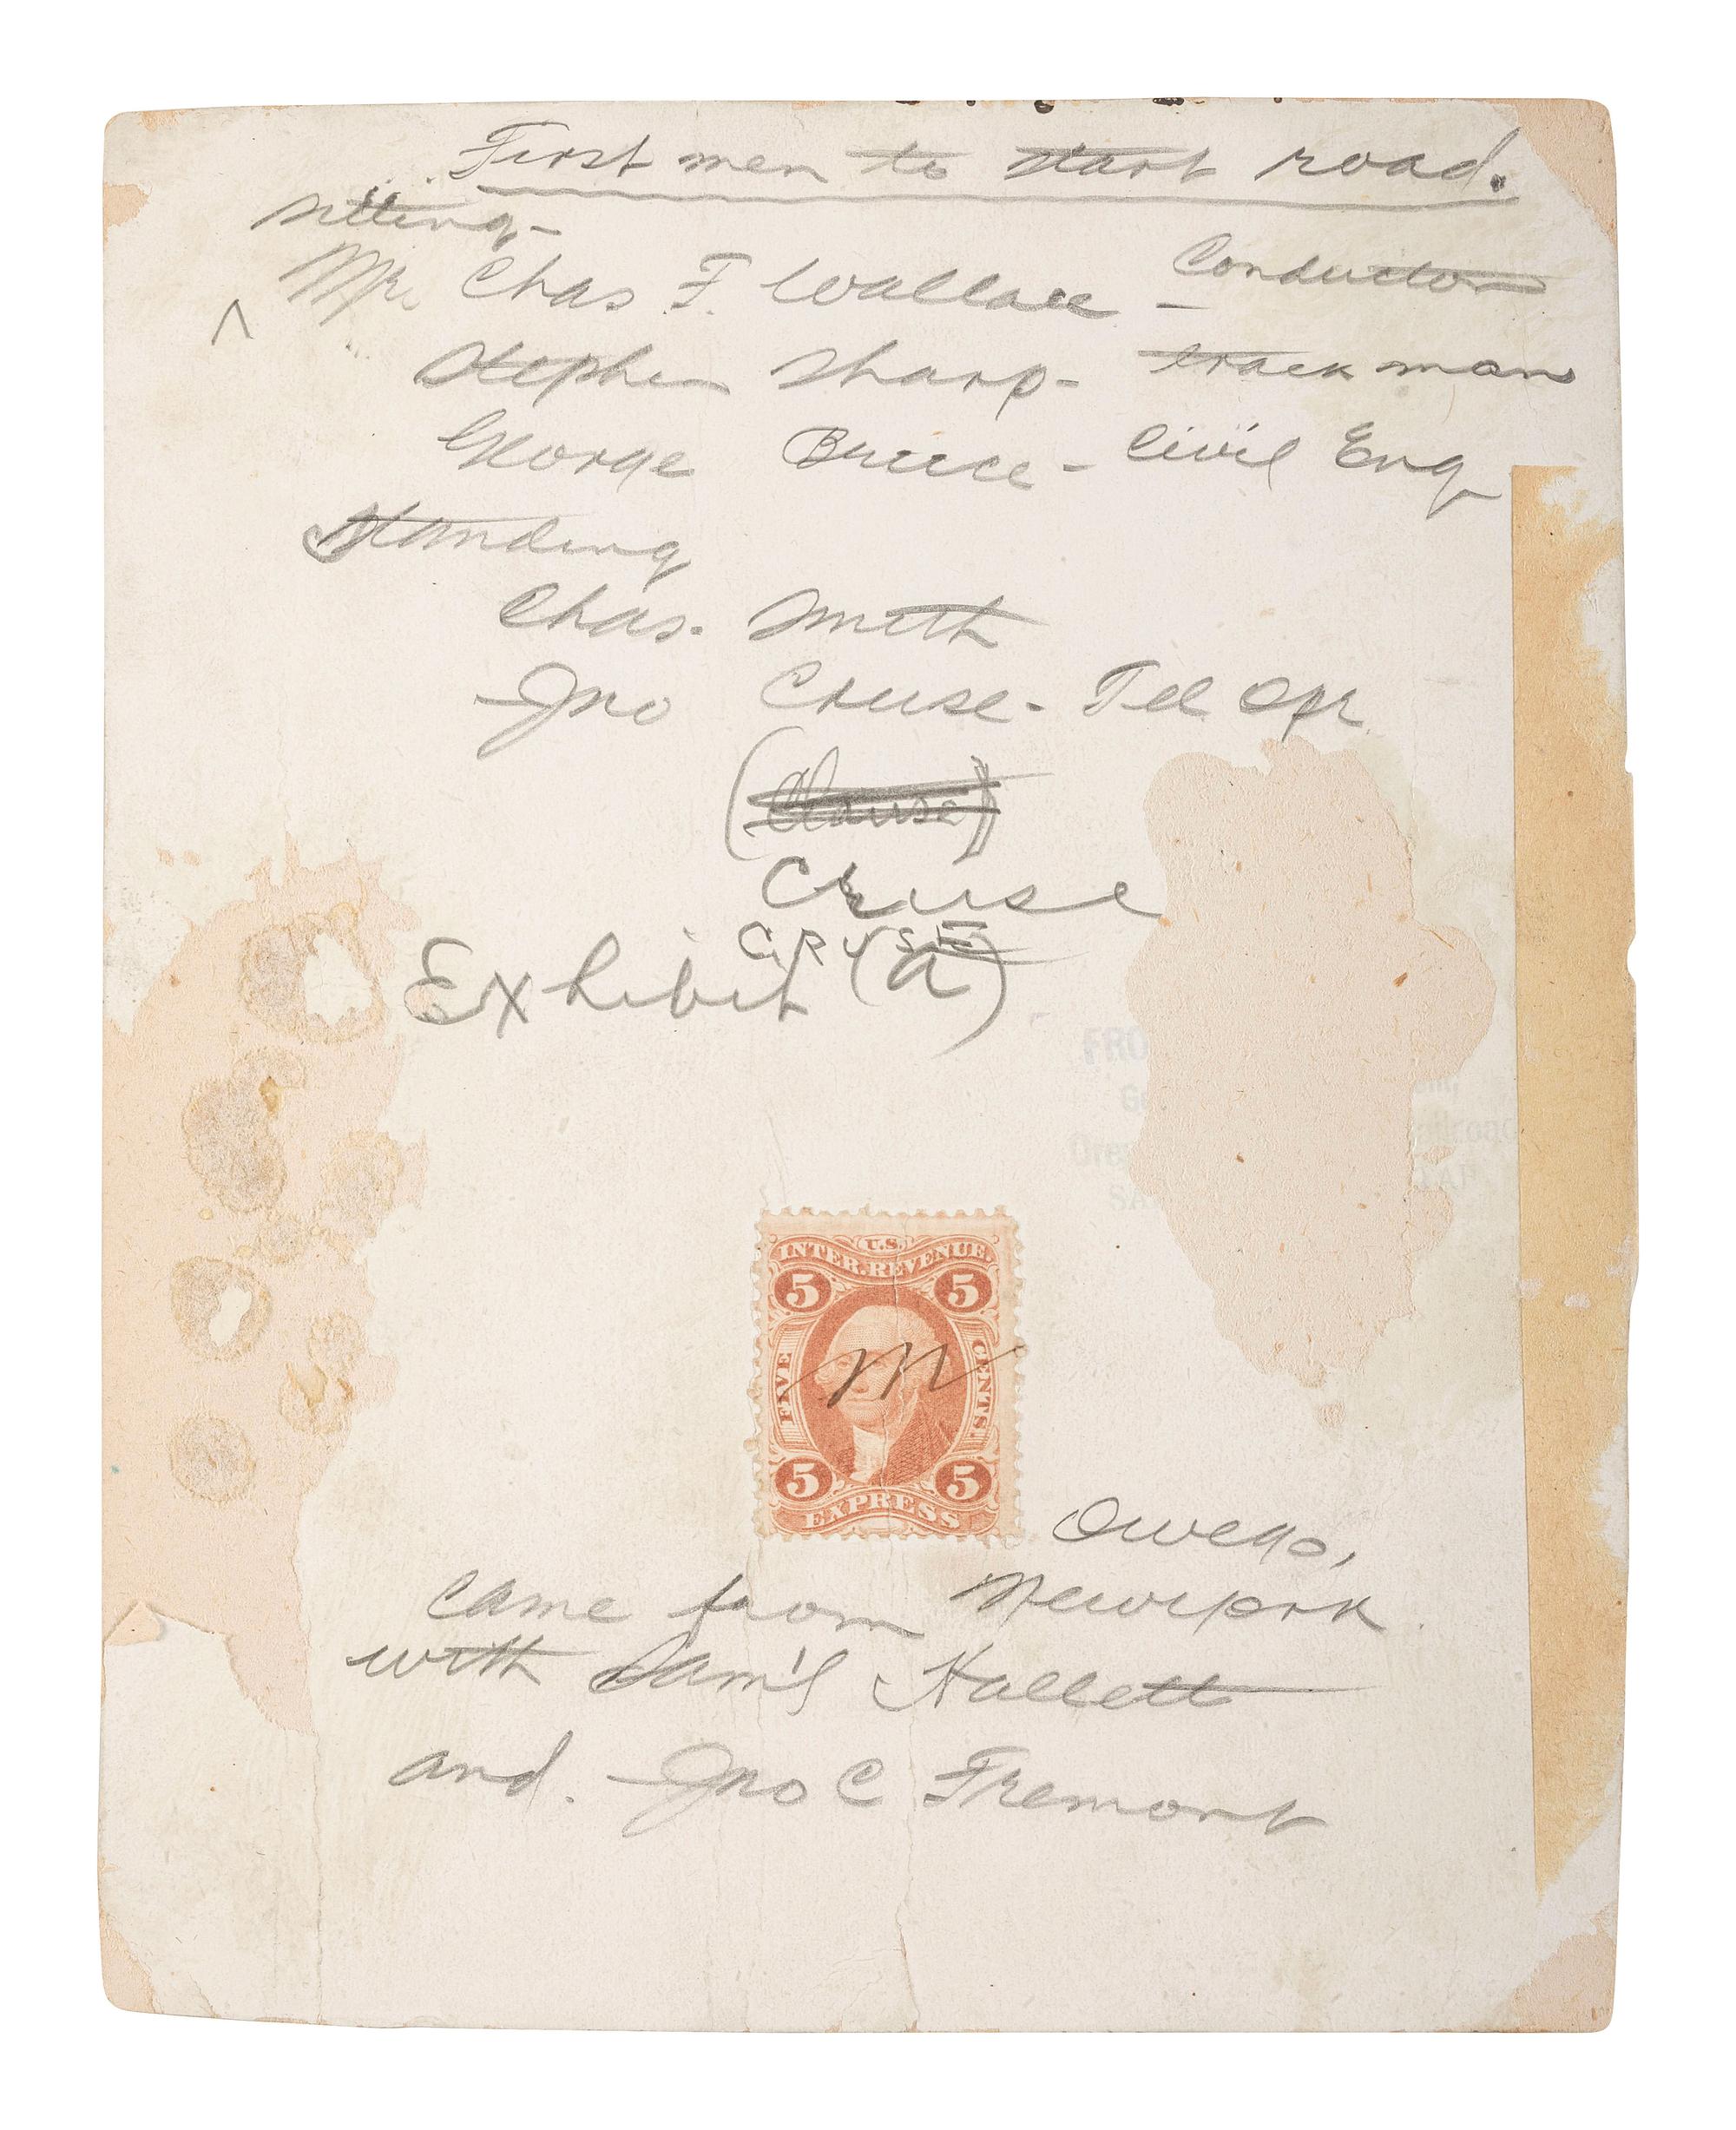 First men to start road.
sitting-
Mr. Chas F. Wallace - Conductor
^
Stephen Sharp - track man
George Bruce - Civil Eng
Standing
Chas. Smith
Jno Cruse - Tel Opr
Cruse
CRUSE
Exhibit (a)
FRO
Ge
ilroad
Ore
SA
U.S.
INTER. REVENUE.
5 5
FIVE CENTS
m
5 5
EXPRESS
Owego,
came from Newyork
with Sam'l Hallett
and. Jno C Fremont